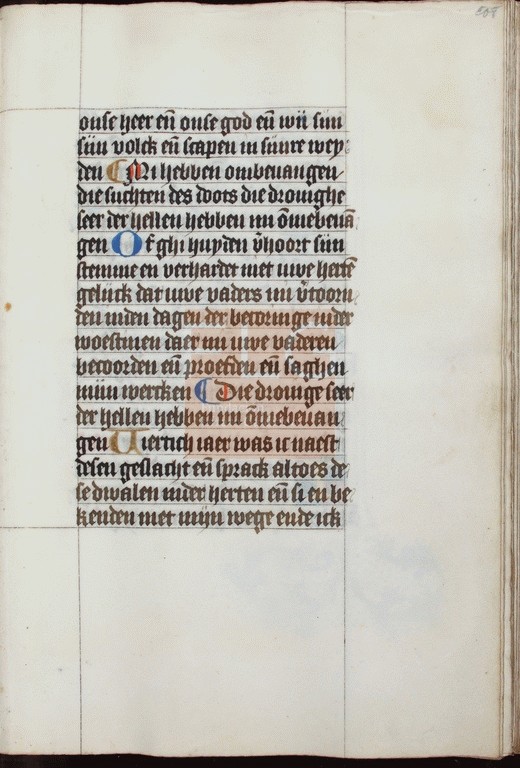 508
onse heer eñ onse god eñ wij sijn
sijn volck eñ scapen in sijnre wey
den Mi hebben ombeuangen
die suchten des doots die drouighe
seer der hellen hebben mi õmebeuã
gen Of ghi huyden v̄hoort sijn
stemme en verhardet niet uwe hertē
gelijck dat uwe vaders mi v̄toorn
den inden dagen der becoringe inder
woestinen daer mi uwe vaderen
becoorden eñ proefden eñ saghen
mijn wercken Die drouige seer
der hellen hebben mi õmebeuan
gen Viertich iaer was ic naest
desen geslacht eñ sprack altoes de
se dwalen inder herten eñ si en be
kenden niet mijn wege ende ick